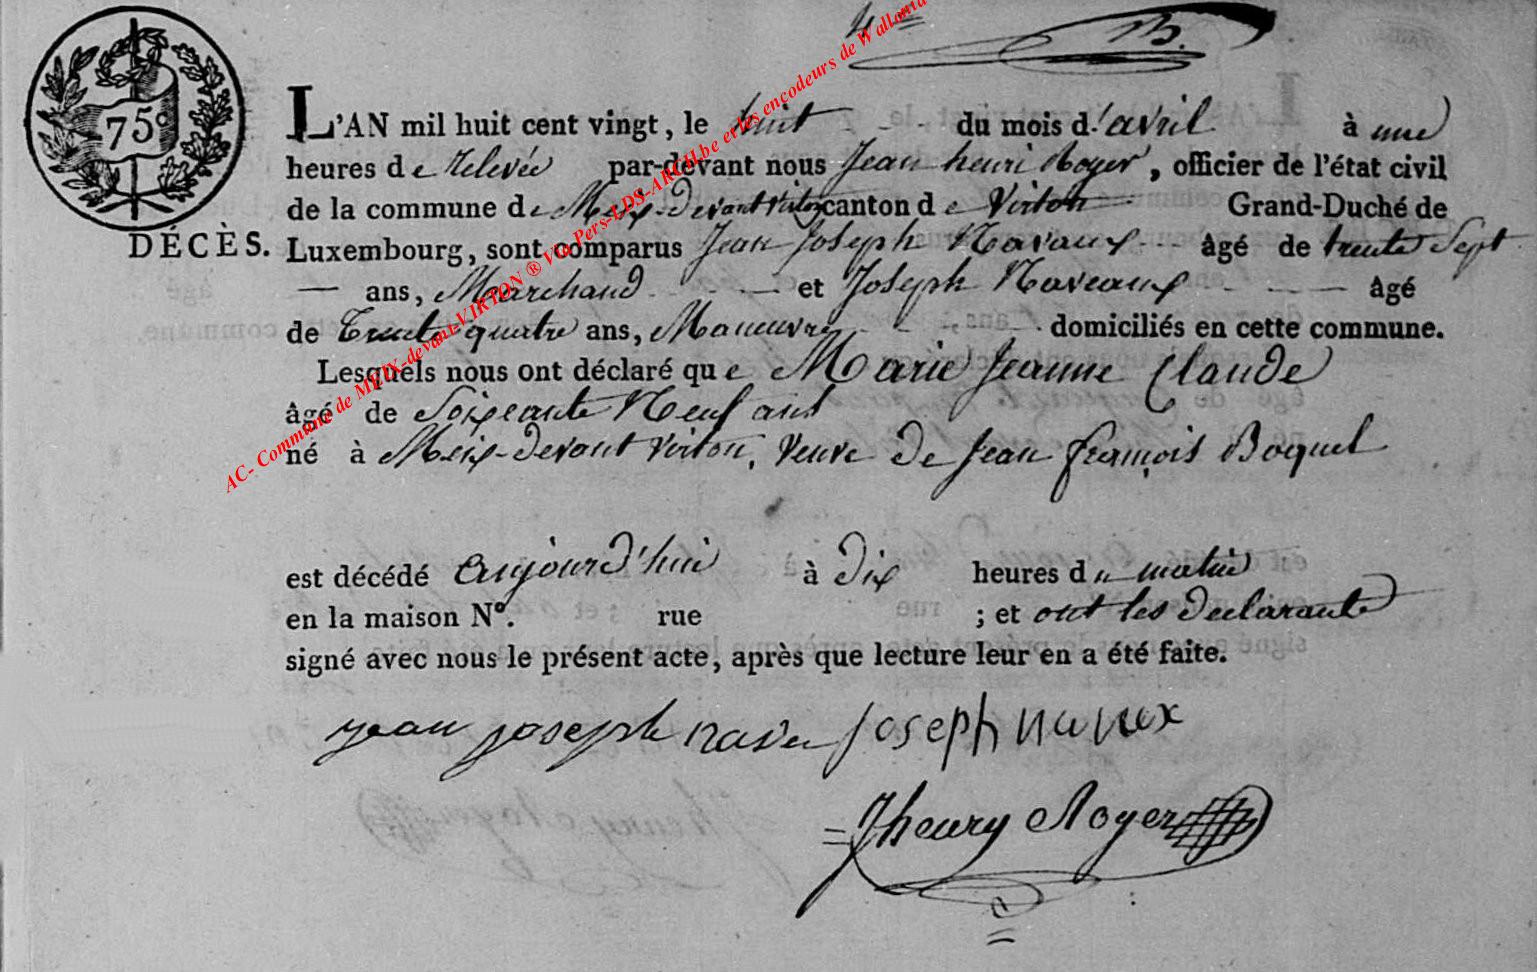 4me B.
75c
L'AN mil huit cent vingt, le huit du mois d'avril à une
heures de relevée par-devant nous Jean henri Royer, officier de l'état civil
de la commune de Meix-Devant virton canton de Virton Grand-Duché de
DÉCÈS. Luxembourg, sont comparus Jean Joseph Navaux âgé de trente Sept
ans, Marchand et Joseph Naveaux âgé
de Trente quatre ans, Maneuvre domiciliés en cette commune.
Lesquels nous ont déclaré que Marie Jeanne Claude
âgé de Soixante Neuf ans
né à Meix-devant virton, veuve de Jean françois Boquel
est décédé aujourd'hui à dix heures du matin
en la maison N°. rue ; et ont les declarants
signé avec nous le présent acte, après que lecture leur en a été faite.
jean joseph joseph
Jhenry Royer
AC- Commune de MEIX-devant-VIRTON ® Via Pers-LDS-ARCH.be et les encodeurs de Wallonia